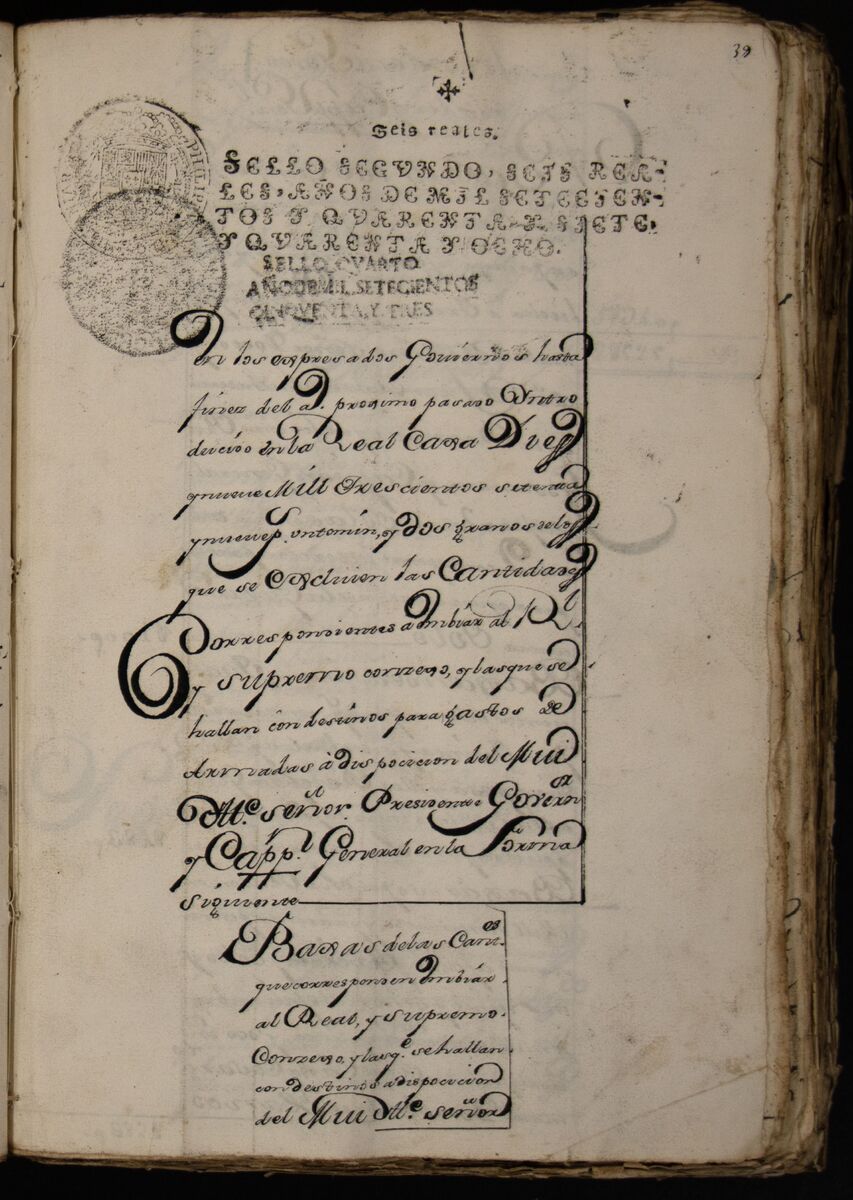 39
Seis reales.
SELLO SEGVNDO, SEIS REA-
LES, AÑOS DE MIL SETECIEN-
TOS Y QVARENTA Y SIETE,
Y QVARENTA Y OCHO.
SELLO QVARTO
AÑO DE MIL SETECIENTOS
CINQVENTA, Y TRES
PHILIP
En los expresados Gouiernos hasta
fines del a. proximo pasado Yntro
ducido en la Real Caxa Diez
y nueve Mill Trescientos setenta
y nueve p. un tomin, y dos granos de los
que se excluien las Cantidades
Correspondientes a Embiar al Rl
y supremo conzexo, y las que se
hallan con destinos para gastos de
Armadas à disposicion del Mui
Ille señor Presidente Governor
y Cappn General en la Forma
siguiente
Baxas de las Cantes
que corresponden Embiar
al Real, y supremo
Conzexo, y las qe se hallan
con destinos a disposicion
del Mui Ille señor